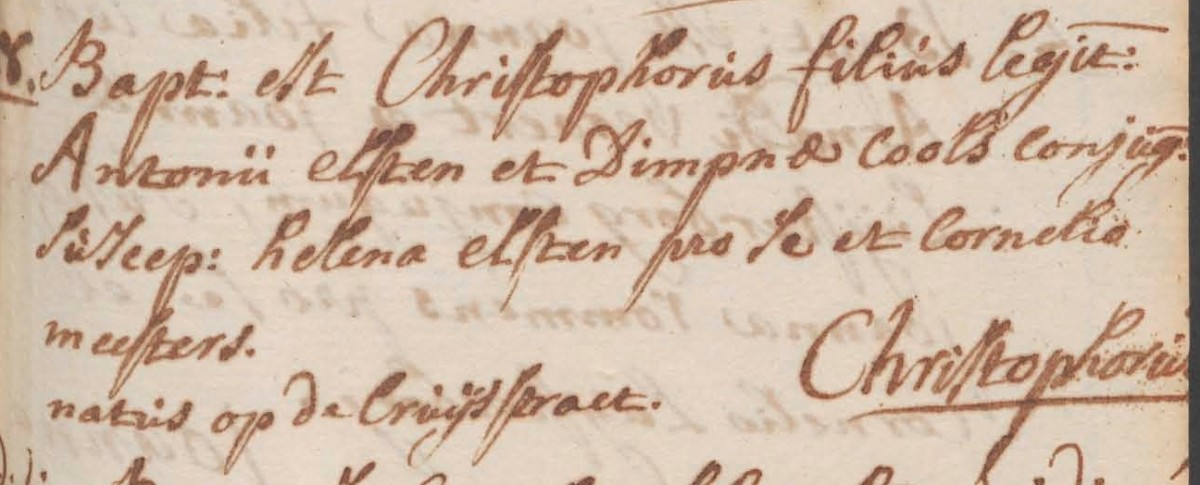 8. Bapt: est Christophorus filius legit:
Antonii elsten et Dimpnæ Cools conjug:
suscep: helena elsten pro se et Cornelio
meesters.
Christophorus
natus op de Cruijsstraet.